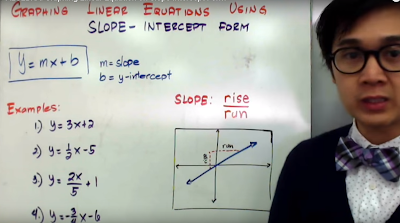 GRAPHING LINEAR EQUATIONS USING
SLOPE-INTERCEPT FORM
y=mx+b
m=slope
b=y-intercept
Examples:
1) y=3x+2
2) y=1/2x-5
3) y=2x/5+1
4) y=-3/4x-6
SLOPE: rise/run
rise
run